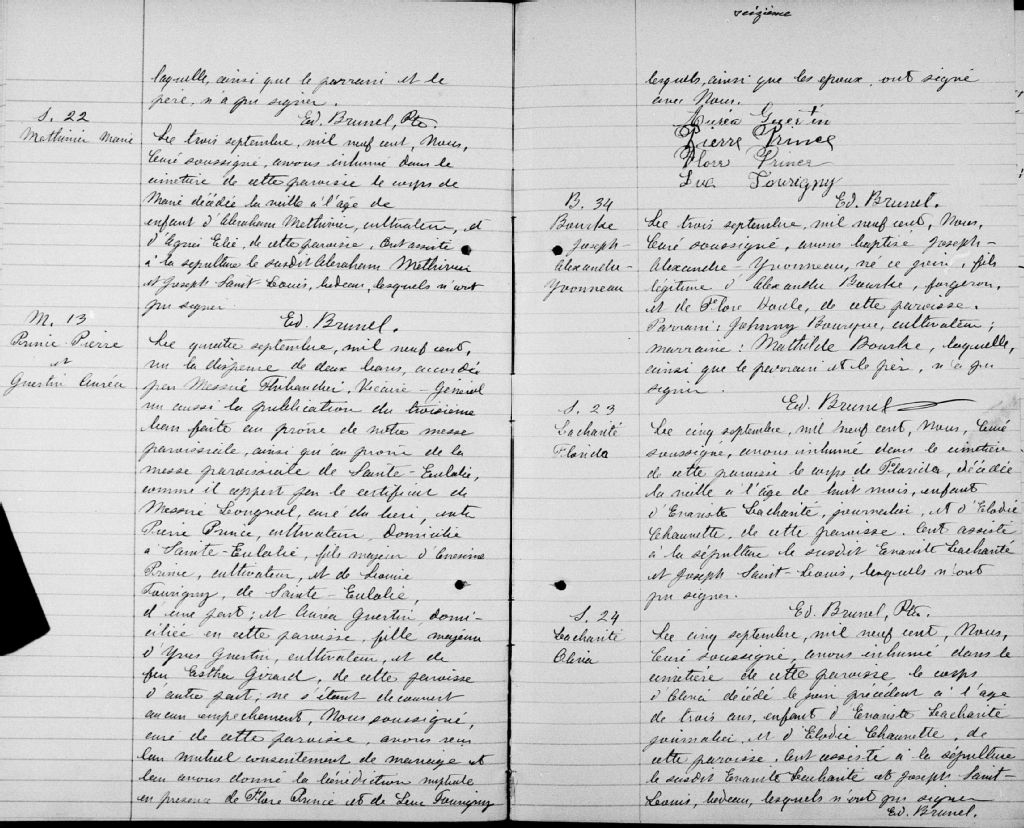 laquelle, ainsi que le parrain et le
père, n'a pu signer.
Ed. Brunel, Ptre.
S. 22
Methivier Marie
Le trois septembre, mil neuf cent, Nous,
Curé soussigné, avons inhumé dans le
cimetière de cette paroisse le corps de
Marie décédée la veille à l'âge de
enfant d'Abraham Methivier, cultivateur, et
d'Agnès Elie, de cette paroisse. Ont assisté
à la sépulture le susdit Abraham Methivier
et Joseph Saint-Louis, bedeau, lesquels n'ont
pu signer.
Ed. Brunel.
M. 13
Prince Pierre
et
Guertin Auréa
Le quatre septembre, mil neuf cent,
vu la dispense de deux bans, accordée
par Messire Thibaudier, Vicaire-Général
vu aussi la publication du troisième
ban faite au prône de notre messe
paroissiale, ainsi qu'au prône de la
messe paroissiale de Sainte-Eulalie,
comme il appert par le certificat de
Messire curé du lieu, entre
Pierre Prince, cultivateur, domicilié
à Sainte-Eulalie, fils majeur d'Onésime
Prince, cultivateur, et de
Tourigny, de Sainte-Eulalie,
d'une part; et Auréa Guertin domi-
ciliée en cette paroisse, fille majeure
d'Yves Guertin, cultivateur, et de
feu Esther Girard, de cette paroisse
d'autre part; ne s'étant découvert
aucun empêchement, Nous soussigné,
curé de cette paroisse, avons reçu
leur mutuel consentement de mariage et
leur avons donné la bénédiction nuptiale
en présence de Flore Prince et de Luc Tourigny
seizième
lesquels, ainsi que les époux ont signé
avec Nous.
Auréa Guertin
Pierre Prince
Flore Prince
Luc Tourigny
Ed. Brunel.
B. 34
Bourke
Joseph-
Alexandre-
Yvonneau
Le trois septembre, mil neuf cent, Nous,
Curé soussigné, avons baptisé Joseph-
Alexandre-Yvonneau, né ce jour, fils
légitime d'Alexandre Bourke, forgeron,
et de Flore Houle, de cette paroisse.
Parrain: Johnny Bourque, cultivateur;
marraine: Mathilde Bourke, laquelle,
ainsi que le parrain et le père, n'a pu
signer.
Ed. Brunel
S. 23
Lacharité
Florida
Le cinq septembre, mil neuf cent, Nous, Curé
soussigné, avons inhumé dans le cimetière
de cette paroisse le corps de Florida, décédée
la veille à l'âge de huit mois, enfant
d'Evariste Lacharité, journalier, et d'Elodie
Chaurette, de cette paroisse. Ont assisté
à la sépulture le susdit Evariste Lacharité
et Joseph Saint-Louis, lesquels n'ont
pu signer.
Ed. Brunel, Ptre.
S. 24
Lacharité
Clovia
Le cinq septembre, mil neuf cent, Nous,
Curé soussigné, avons inhumé dans le
cimetière de cette paroisse le corps
d' décédé le jour précédent à l'âge
de trois ans, enfant d'Evariste Lacharité
journalier et d'Elodie Chaurette, de
cette paroisse. Ont assisté à la sépulture
le susdit Evariste Lacharité et Joseph Saint-
Louis, bedeau, lesquels n'ont pu signer
Ed. Brunel.